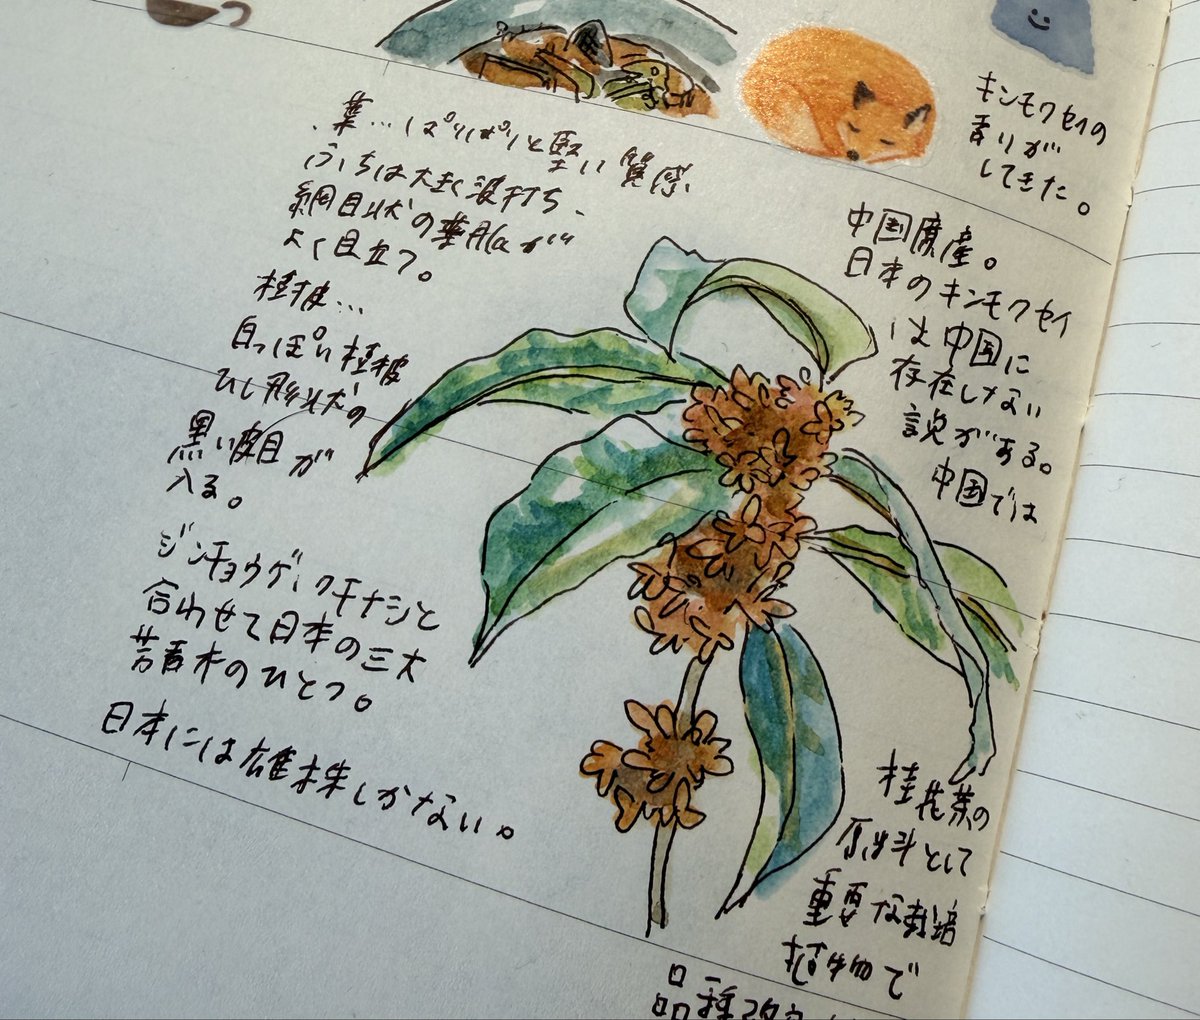 キンモクセイの
香りが
してきた。
葉…ぱりぱりと堅い質感
ふちは大きく波打ち、
網目状の葉脈が
よく目立つ。
樹皮…
白っぽい樹皮
ひし形状の
黒い皮目が
入る。
ジンチョウゲ、クチナシと
合わせて日本の三大
芳香木のひとつ。
日本には雄株しかない。
中国原産。
日本のキンモクセイ
は中国に
存在しない
説がある。
中国では
桂花茶の
原料として
重要な栽培
植物で
品種改